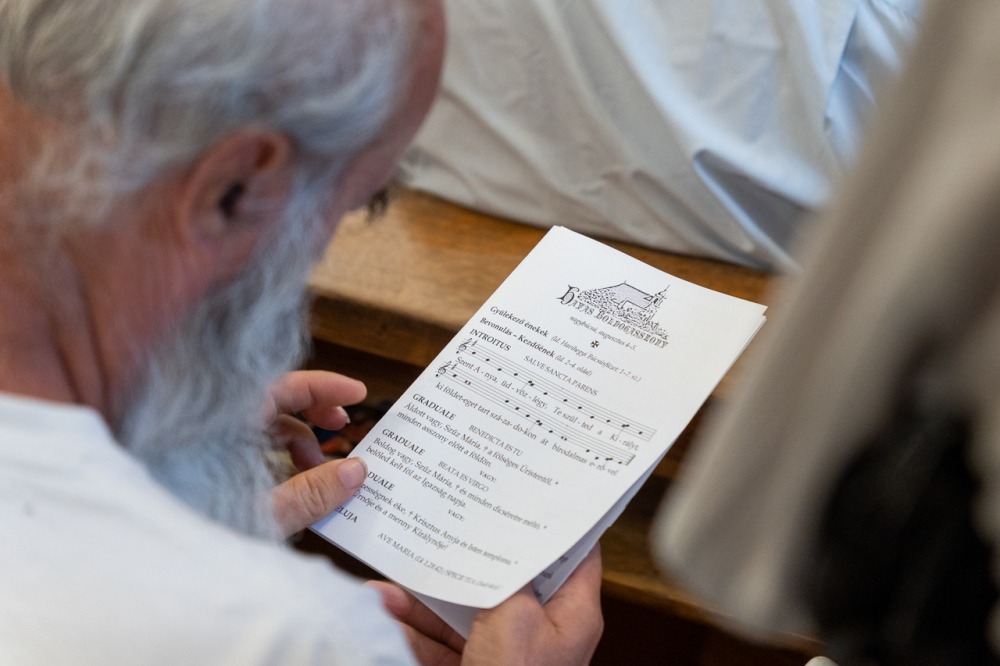 HAVAS BOLDOGASSZONY
nagybúcsú, augusztus 4-5.
Gyülekező énekek
Bevonulás – Kezdőének (ld. 2-4. oldal)
INTROITUS SALVE SANCTA PARENS
Szent A - nya, üd - vöz - légy. Te szül - ted a Ki - rályt,
ki földet-eget tart szá-za-do-kon át birodalmas e-rő-vel
GRADUALE BENEDICTA ES TU
Áldott vagy, Szűz Mária, † a fölséges Úristentől, *
minden asszony előtt a földön.
VAGY:
GRADUALE BEATA ES VIRGO
Boldog vagy, Szűz Mária, † és minden dicséretre méltó, *
belőled kelt föl az Igazság napja.
VAGY:
DUALE
† Krisztus Anyja és Isten temploma, *
és a menny Királynője!
ELUJA
AVE MARIA